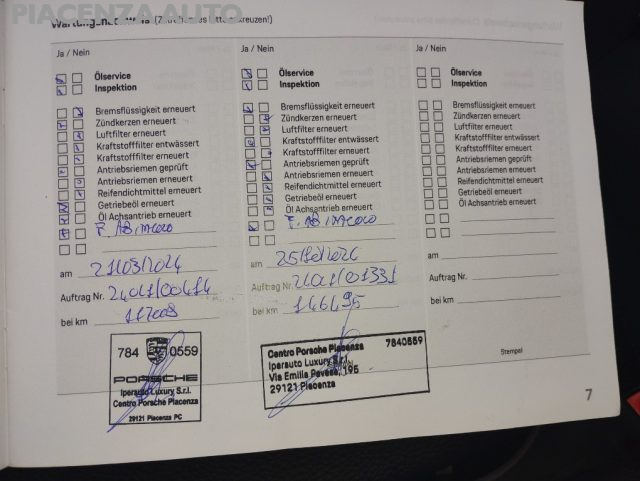 PIACENZA AUTO
(Zutreffendes bitte ankreuzen)
Ja / Nein
Ölservice
Inspektion
Bremsflüssigkeit erneuert
Zündkerzen erneuert
Luftfilter erneuert
Kraftstofffilter entwässert
Kraftstofffilter erneuert
Antriebsriemen geprüft
Antriebsriemen erneuert
Reifendichtmittel erneuert
Getriebeöl erneuert
Öl Achsantrieb erneuert
am 21/03/2024
Auftrag Nr. 2401/00414
bei km 117008
784 0559
PORSCHE
Iperauto Luxury S.r.l.
Centro Porsche Piacenza
29121 Piacenza PC
Ja / Nein
Ölservice
Inspektion
Bremsflüssigkeit erneuert
Zündkerzen erneuert
Luftfilter erneuert
Kraftstofffilter entwässert
Kraftstofffilter erneuert
Antriebsriemen geprüft
Antriebsriemen erneuert
Reifendichtmittel erneuert
Getriebeöl erneuert
Öl Achsantrieb erneuert
am
Auftrag Nr. 2401/01331
bei km 146495
Centro Porsche Piacenza 7840559
Iperauto Luxury S.r.l.
Via Emilia Pavese, 195
29121 Piacenza
Ja / Nein
Ölservice
Inspektion
Bremsflüssigkeit erneuert
Zündkerzen erneuert
Luftfilter erneuert
Kraftstofffilter entwässert
Kraftstofffilter erneuert
Antriebsriemen geprüft
Antriebsriemen erneuert
Reifendichtmittel erneuert
Getriebeöl erneuert
Öl Achsantrieb erneuert
am
Auftrag Nr.
bei km
Stempel
7